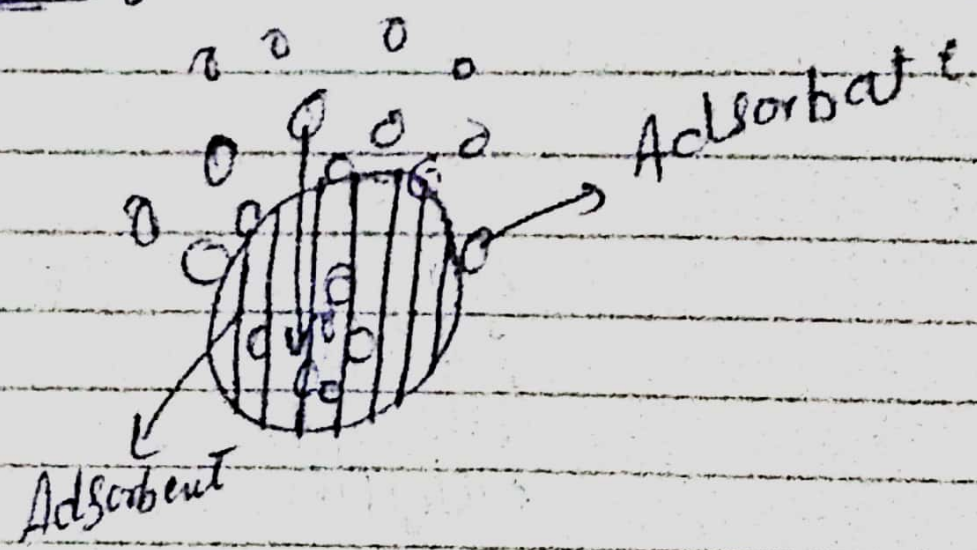 Adsorbate
Adsorbent